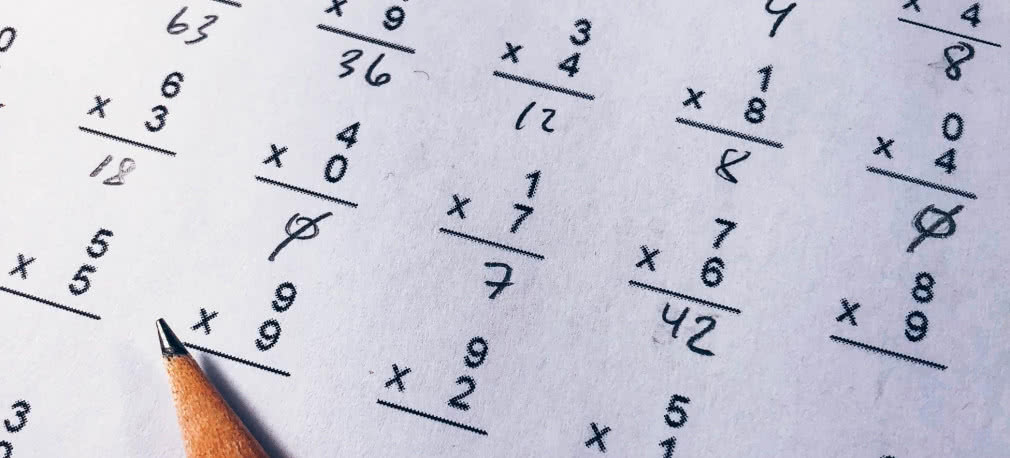 63
× 9
36
3
× 4
12
4
× 4
8
6
× 3
18
4
× 0
0
1
× 7
7
1
× 8
8
0
× 4
0
5
× 5
9
× 9
9
× 2
7
× 6
42
8
× 9
3
5
× 1